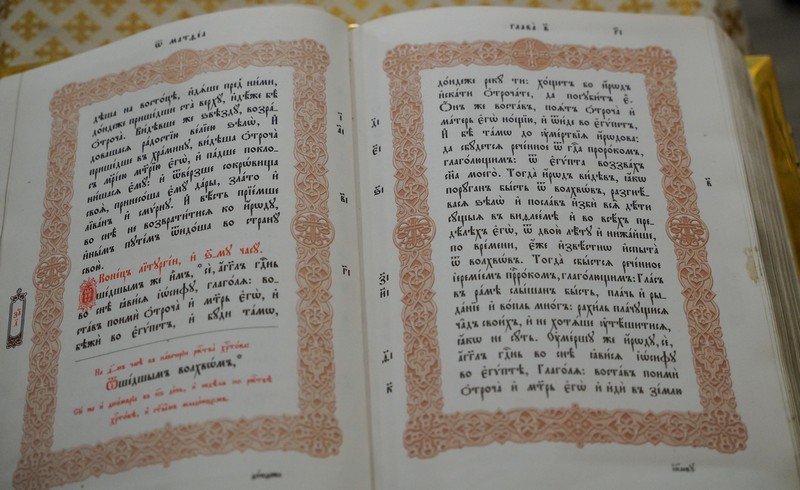 Ѿ матѳіа
дѣша на востоцѣ, идѧше пред̾ ними,
дондеже пришедши ста верху, идѣже бѣ
отроча. Видѣвше же ѕвѣзду, возра-
довашасѧ радостію веліею ѕѣлѡ, И
пришедше въ храмину, видѣша отроча
съ мр҃іею мт҃рію егѡ, и падше покло-
нишасѧ ему: и ѿверзше сокрѡвища
своѧ, принесоша ему дары, злато и
ліванъ и смѵрну. И вѣсть пріемше
во снѣ не возвратитисѧ ко ироду,
инымъ путемъ ѿидоша во страну
свою.
Конецъ литургіи, и ѕ҃му часу.
Ѿшедшымъ же имъ, се, агг҃лъ гд҃нь
во снѣ ꙗвисѧ іѡсифу, глаголѧ: во-
ставъ поими отроча и мт҃рь егѡ, и
бѣжи во егѵпетъ, и буди тамѡ,
Ѿшедшымъ волхвѡмъ,
дондеже
за҃
Глава в҃
дондеже реку ти: хощетъ бо иродъ
искати отрочате, да погубитъ е.
Онъ же воставъ, поѧтъ отроча и
матерь егѡ нощію, и ѿиде во егѵпетъ,
И бѣ тамѡ до умертвіѧ иродова:
да сбудетсѧ реченное ѿ гд҃а пророкомъ,
глаголющимъ: ѿ егѵпта воззвахъ
сн҃а моего. Тогда иродъ видѣвъ, ꙗкѡ
поруганъ бысть ѿ волхвѡвъ, разгнѣ-
васѧ ѕѣлѡ и пославъ изби всѧ дѣти
сущыѧ въ виѳлеемѣ и во всѣхъ пре-
дѣлѣхъ егѡ, ѿ двою лѣту и нижайше,
по времени, еже извѣстнѡ испыта
ѿ волхвѡвъ. Тогда сбыстсѧ реченное
іереміемъ прⷪ҇рокомъ, глаголющимъ: Гласъ
въ рамѣ слышанъ бысть, плачь и ры-
даніе и вопль многъ: рахиль плачущисѧ
чадъ своихъ, и не хотѧше утѣшитисѧ,
ꙗкѡ не суть. Умершу же ироду, се,
агг҃лъ гд҃нь во снѣ ꙗвисѧ іѡсифу
во егѵптѣ, Глаголѧ: воставъ поими
отроча и мт҃рь егѡ и иди въ землю